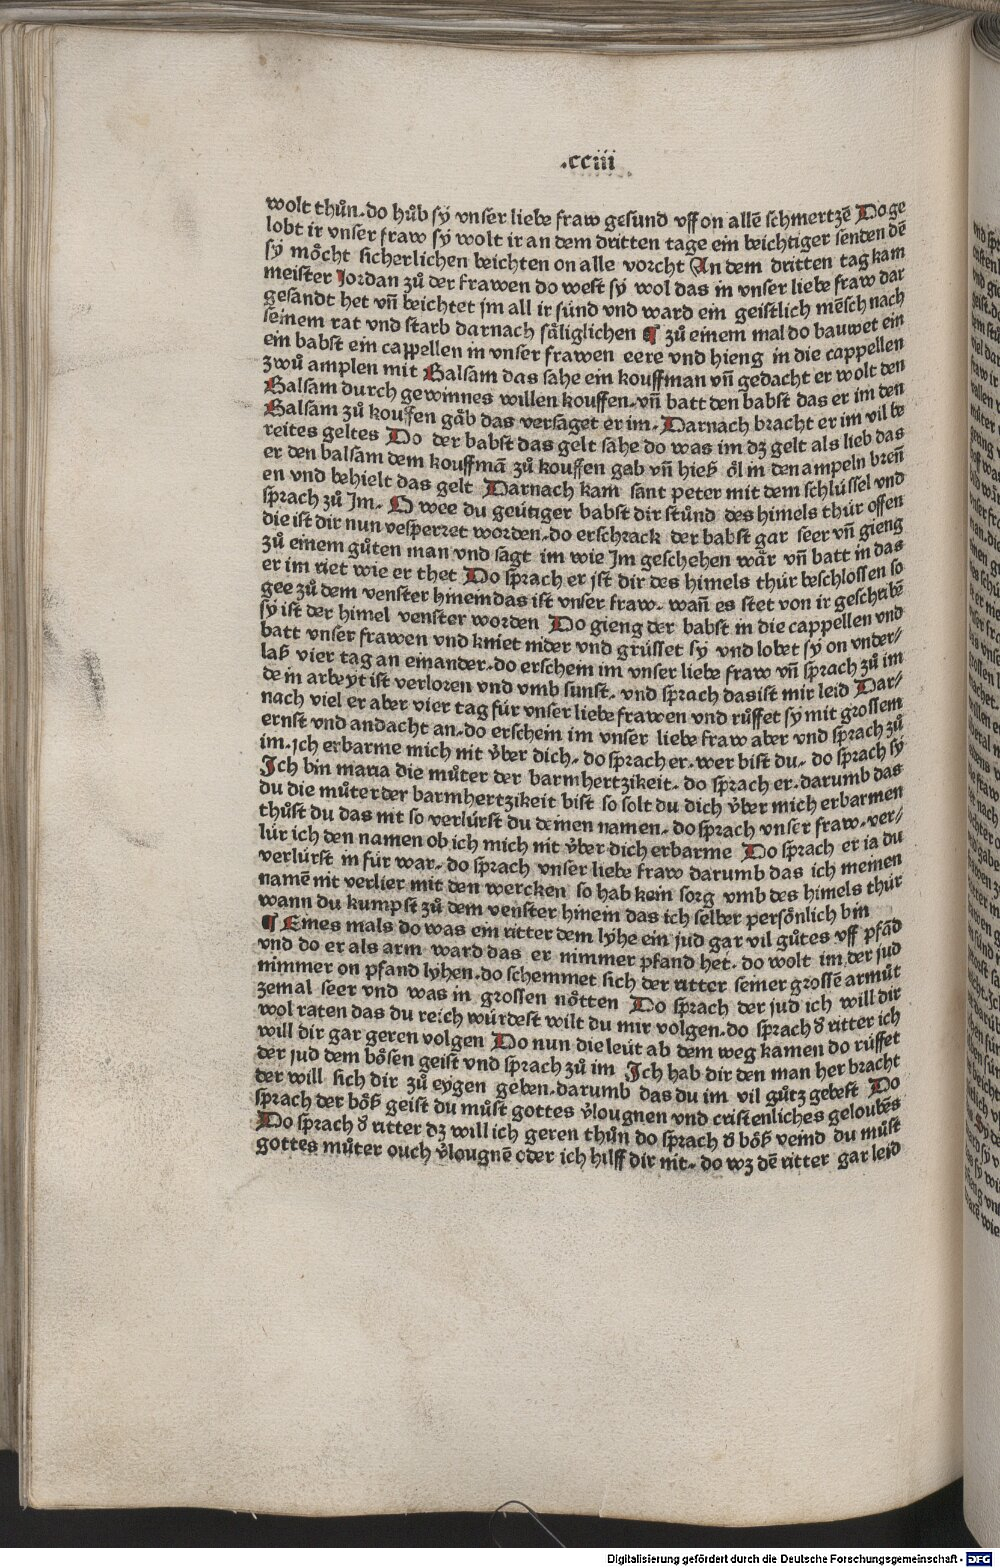 .cciii.
wolt thůn. do hůb sÿ vnser liebe fraw gesund vff on allē schmertzē Do ge
lobt ir vnser fraw sÿ wolt ir an dem dritten tage ein beichtiger senden dē
sÿ möcht sicherlichen beichten on alle vorcht An dem dritten tag kam
meister Jordan zů der frawen do west sÿ wol das in vnser liebe fraw dar
gesandt het vñ beichtet jm all ir sünd vnd ward ein geistlich mēsch nach
seinem rat vnd starb darnach säliglichen ¶ zů einem mal do bauwet ein
ein babst ein cappellen in vnser frawen eere vnd hieng in die cappellen
zwů amplen mit Balsam das sahe ein kouffman vñ gedacht er wolt den
Balsam durch gewinnes willen kouffen. vñ batt den babst das er im den
Balsam zů kouffen gäb das versaget er im. Darnach bracht er im vil be
reites geltes Do der babst das gelt sahe do was im dz gelt als lieb das
er den balsam dem kouffmā zů kouffen gab vñ hieß öl in den ampeln breñ
en vnd behielt das gelt Darnach kam sant peter mit dem schlüssel vnd
sprach zů Jm. O wee du geütiger babst dir stůnd des himels thür offen
die ist dir nun vesperret worden. do erschrack der babst gar seer vñ gieng
zů einem gůten man vnd sagt im wie Jm geschehen wär vñ batt in das
er im riet wie er thet Do sprach er jst dir des himels thür beschlossen so
gee zů dem venster hinein das ist vnser fraw. wañ es stet von ir geschribē
sÿ ist der himel venster worden Do gieng der babst in die cappellen vnd
batt vnser frawen vnd kniet nider vnd grüsset sÿ vnd lobet sÿ on vnder/
laß vier tag an einander. do erschein im vnser liebe fraw vñ sprach zů im
de in arbeÿt ist verloren vnd vmb sunst. vnd sprach das ist mir leid Dar/
nach viel er aber vier tag für vnser liebe frawen vnd růffet sÿ mit grossem
ernst vnd andacht an. do erschein im vnser liebe fraw aber vnd sprach zů
im. jch erbarme mich nit v̈ber dich. do sprach er. wer bist du. do sprach sÿ
Ich bin maria die můter der barmhertzikeit. do sprach er. darumb das
du die můter der barmhertzikeit bist so solt du dich v̈ber mich erbarmen
thůst du das nit so verlürst du deinen namen. do sprach vnser fraw. ver/
lür ich den namen ob ich mich nit v̈ber dich erbarme Do sprach er ia du
verlürst in für war. do sprach vnser liebe fraw darumb das ich meinen
namē nit verlier mit den wercken so hab kein sorg vmb des himels thür
wann du kumpst zů dem venster hinein das ich selber persönlich bin
¶ Eines mals do was ein ritter dem lÿhe ein jud gar vil gůtes vff pfād
vnd do er als arm ward das er nimmer pfand het. do wolt im der jud
nimmer on pfand lÿhen. do schemmet sich der ritter seiner grossē armůt
zemal seer vnd was in grossen nötten Do sprach der jud ich will dir
wol raten das du reich würdest wilt du mir volgen. do sprach ď ritter ich
will dir gar geren volgen Do nun die leüt ab dem weg kamen do růffet
der jud dem bösen geist vnd sprach zů im Jch hab dir den man her bracht
der will sich dir zů eygen geben. darumb das du im vil gůtz gebest Do
sprach der böß geist du můst gottes v̄lougnen vnd cristenliches geloubēs
Do sprach ď ritter dz will ich geren thůn do sprach ď böß veind du můst
gottes můter ouch v̄lougnē oder ich hilff dir nit. do wz dē ritter gar leid
Digitalisierung gefördert durch die Deutsche Forschungsgemeinschaft - DFG